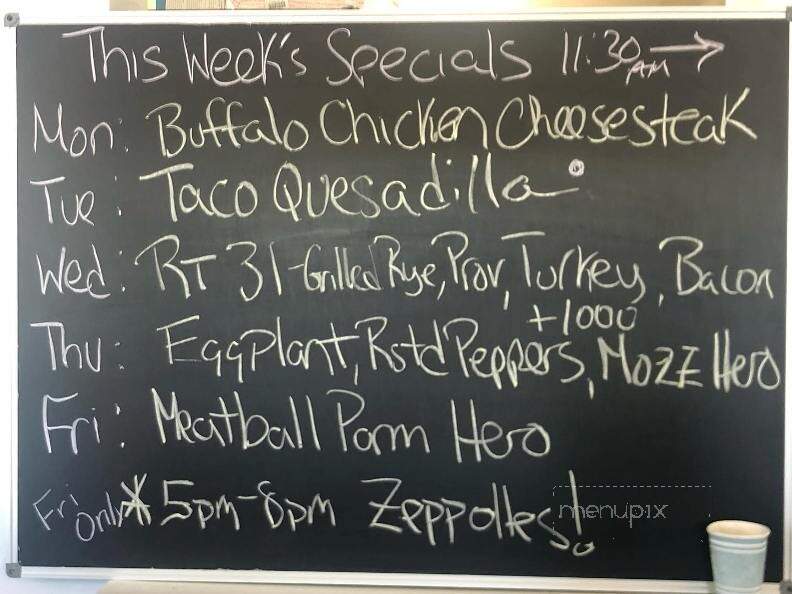 This Week's Specials 11:30 AM →
Mon: Buffalo Chicken Cheesesteak
Tue: Taco Quesadilla
Wed: RT 31 - Grilled Rye, Prov, Turkey, Bacon
+1000
Thu: Eggplant, Rstd Peppers, Mozz Hero
Fri: Meatball Parm Hero
Fri only * 5pm-8pm Zeppolles!
menupix